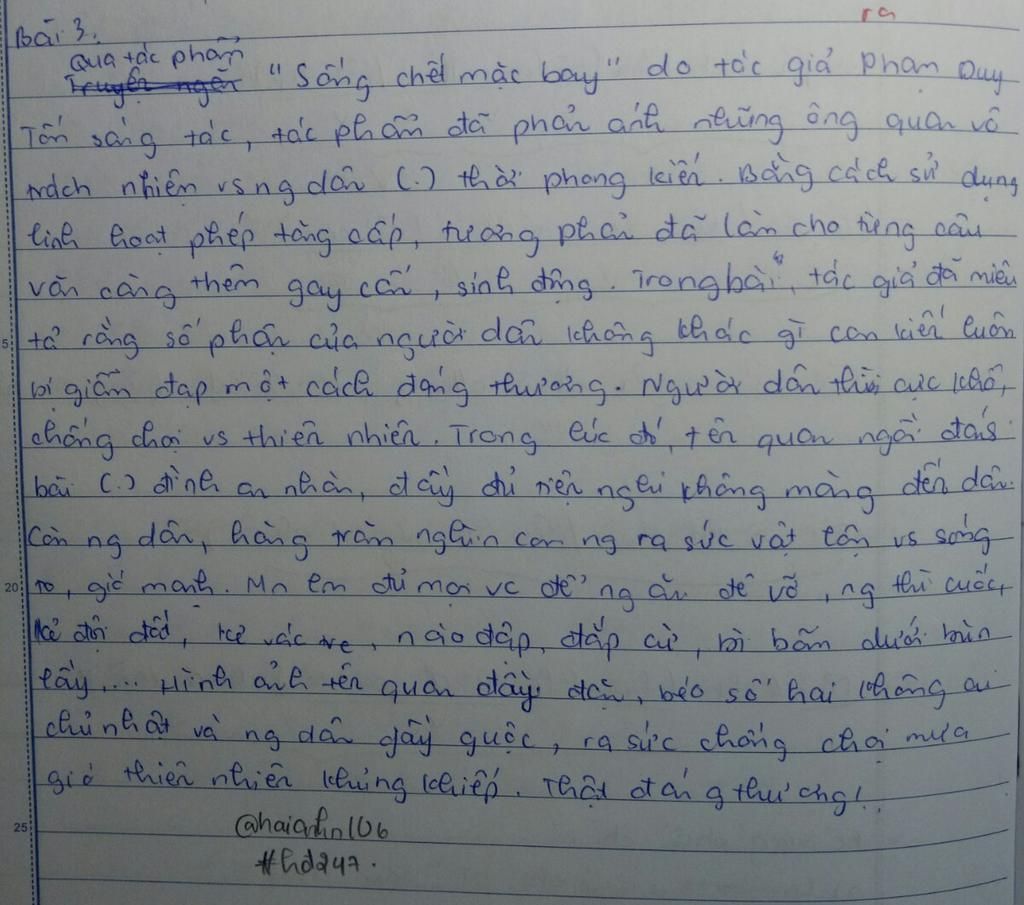 ra
Bài 3.
Qua tác phẩm
Truyện ngắn "Sống chết mặc bay" do tác giả Phạm Duy
Tốn sáng tác, tác phẩm đã phản ánh những ông quan vô
trách nhiện vs ng dân (.) thời phong kiến. Bằng cách sử dụng
linh hoạt phép tăng cấp, tương phản đã làm cho từng câu
văn càng thêm gay cấn, sinh động. Trong bài, tác giả đã miêu
tả rằng số phận của người dân không khác gì con kiến luôn
bị giẫm đạp một cách đáng thương. Người dân thì cực khổ,
chống chọi vs thiên nhiên. Trong lúc đó, tên quan ngồi đánh
bài (.) đình an nhàn, đầy đủ tiện nghi không màng đến dân.
Còn ng dân, hàng trăm nghìn con ng ra sức vật lộn vs sóng
to, gió mạnh. Mn làm đủ mọi vc để ngăn đê vỡ, ng thì cuốc,
kẻ đội đất, kẻ vác tre, nào đắp, đắp cừ, bì bõm dưới bùn
lầy,... Hình ảnh tên quan đầy đặn, béo số hai không ai
chủ nhật và ng dân gầy guộc, ra sức chống chọi mưa
gió thiên nhiên khủng khiếp. Thật đáng thương!
@haianhn106
#hd247.